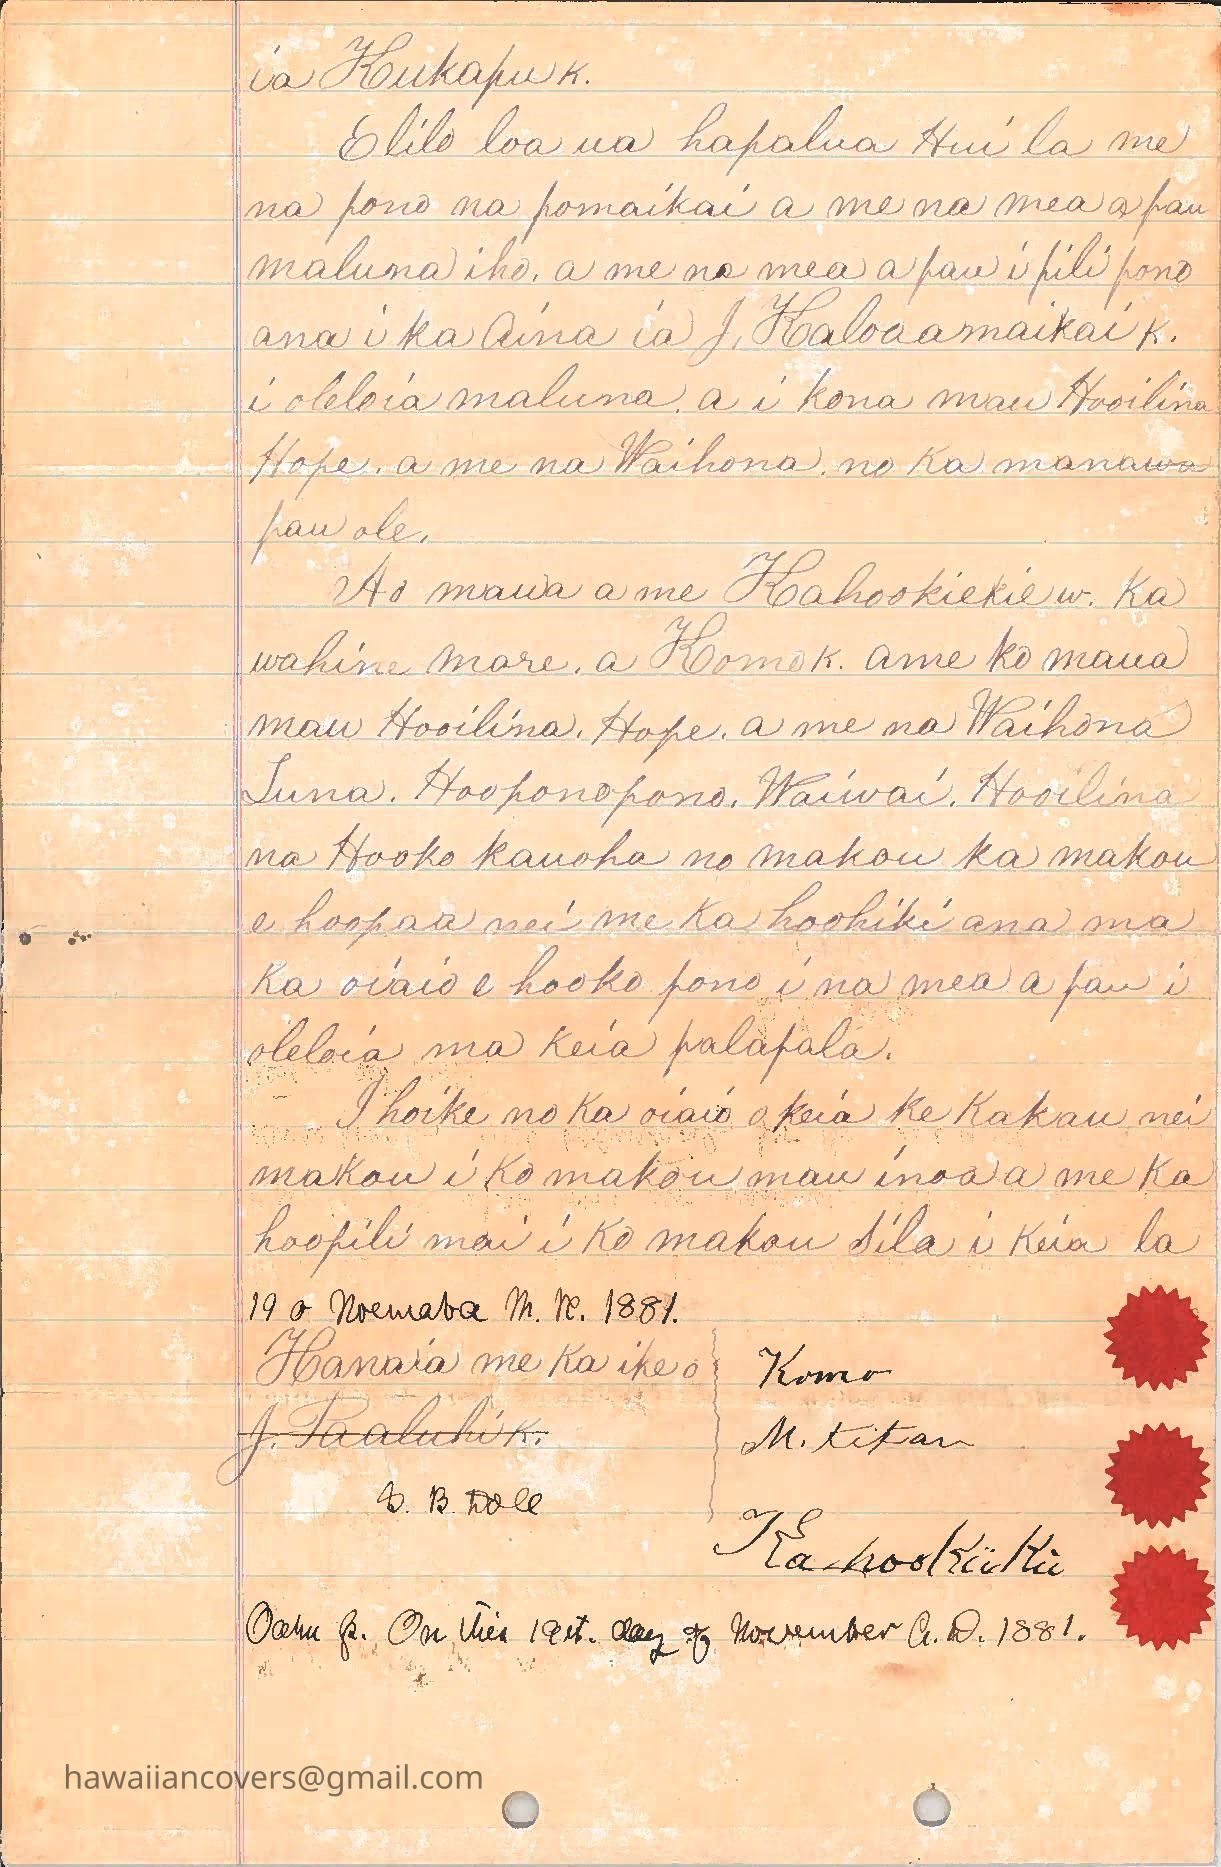 ia Kukapu k.
E lilo loa ua hapalua Hui la me
na pono na pomaikai a me na mea a pau
maluna iho, a me na mea a pau i pili pono
ana i ka Aina ia J. Kaloaamaikai k.
i oleloia maluna, a i kona mau Hooilina
Hope, a me na Waihona, no ka manawa
pau ole.
Ao maua a me Kahookiekie w. ka
wahine mare, a Komo k. ame ko maua
mau Hooilina, Hope, a me na Waihona
Luna, Hooponopono, Waiwai, Hooilina
na Hooko kauoha no makou ka makou
e hoopaa nei me ka hoohiki ana ma
ka oiaio e hooko pono i na mea a pau i
oleloia ma keia palapala.
I hoike no ka oiaio o keia ke kakau nei
makou i ko makou mau inoa a me ka
hoopili mai i ko makou Sila i keia la
19 o Noemaba M. H. 1881.
Hanaia me ka ike o
Komo
J. Paaluhi k.
M. Titan
S. B. Dole
Kahookiikii
Oahu ss. On this 19th. day of November A. D. 1881.
hawaiiancovers@gmail.com